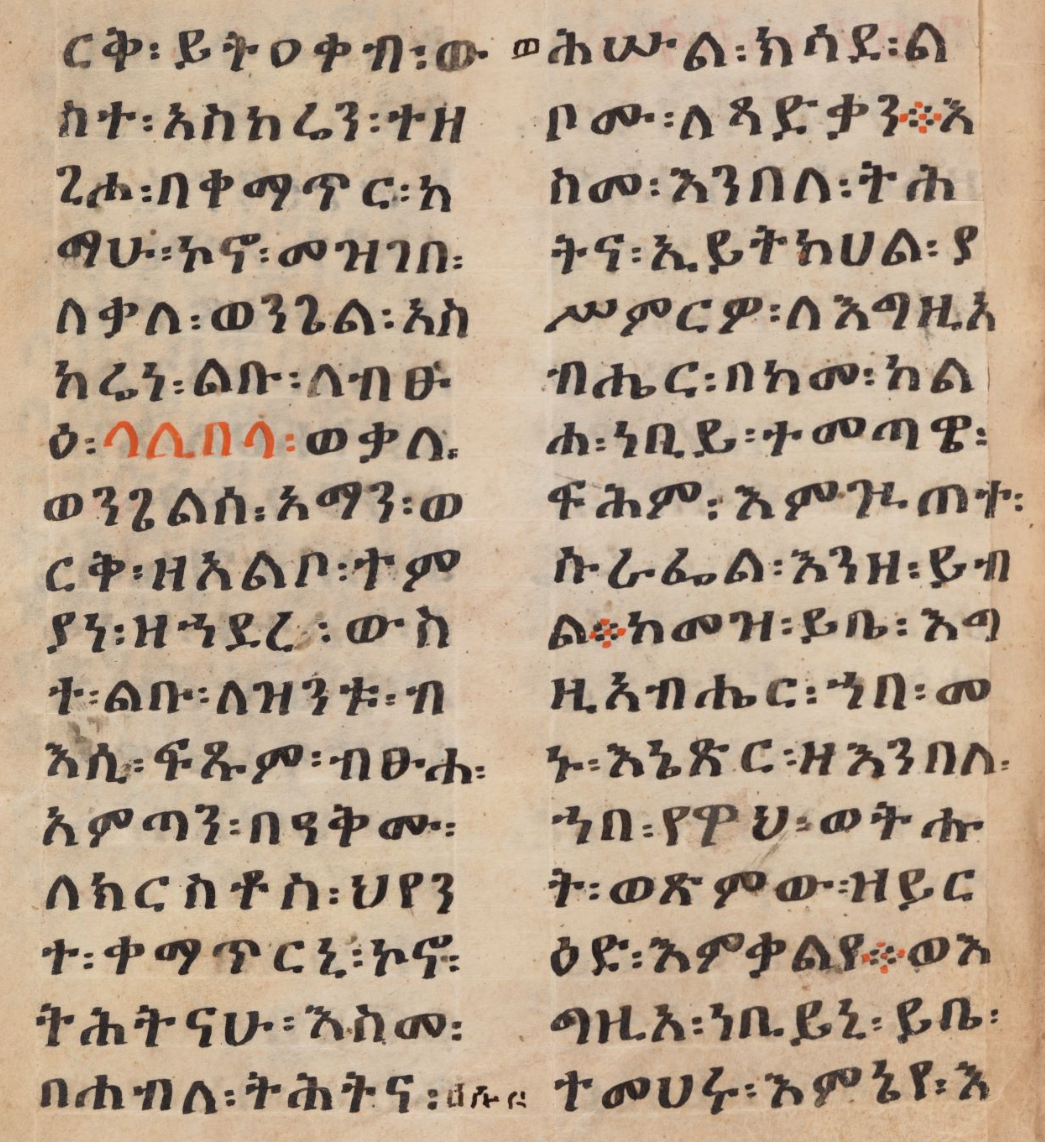 ርቅ፡ይትዐቀብ፡ው
ስተ፡አስከሬን፡ተዘ
ጊሐ፡በቀማጥር፡ከ
ማሁ፡ኮኖ፡መዝገበ፡
ለቃለ፡ወንጌል፡አስ
ከሬነ፡ልቡ፡ለብፁ
ዕ፡ላሊበላ፡ወቃለ፡
ወንጌልሰ፡አማን፡ወ
ርቅ፡ዘአልቦ፡ተም
ያነ፡ዘኀደረ፡ውስ
ተ፡ልቡ፡ለዝንቱ፡ብ
እሲ፡ፍጹም፡ብፁሐ፡
አምጣን፡በዓቅሙ፡
ለክርስቶስ፡ህየን
ተ፡ቀማጥርኒ፡ኮኖ፡
ትሕትናሁ፡እስመ፡
በሐብለ፡ትሕትና፡
ወሕሡል፡ክሳደ፡ል
ቦሙ፡ለጻድቃን፨እ
ስመ፡እንበለ፡ትሕ
ትና፡ኢይትከሀል፡ያ
ሥምርዎ፡ለእግዚአ
ብሔር፡በከመ፡ከል
ሐ፡ነቢይ፡ተመጣዌ፡
ፍሕም፡እምገጸ፡ጠተ፡
ሱራፌል፡እንዘ፡ይብ
ል፨ከመዝ፡ይቤ፡እግ
ዚአብሔር፡ኀበ፡መ
ኑ፡እኔጽር፡ዘእንበለ፡
ኀበ፡የዋህ፡ወትሑ
ት፡ወጽምው፡ዘይር
ዕድ፡እምቃልየ፨ወእ
ግዚአ፡ነቢይኒ፡ይቤ፡
ተመሀሩ፡እምኔየ፡እ